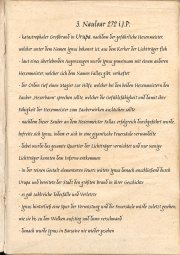 3. Naulaar 272 i.J.P.
- katastrophaler Großbrand in Urapa, nachdem der gefährliche Hexenmeister,
welcher unter dem Namen Ignus bekannt ist, aus dem Kerker der Lichträger floh
- laut eines überlebenden Augenzeugen wurde Ignus gemeinsam mit einem anderen
Hexenmeister, welcher sich dem Namen Valkes gibt, verhaftet
- der Orden rief einen Magier zur Hilfe, welcher bei den beiden Hexenmeistern den
Zauber „ ” sprechen sollte, welcher die Gefährlichkeit und damit ihre
Fähigkeit der Hexenmeister zum Zauberwirken auslöschen sollte
- nachdem dieser Zauber an dem Hexenmeister Valkes erfolgreich durchgeführt wurde,
befreite sich Ignus, indem er sich in eine gigantische Feuersäule verwandelte
- dabei wurde das gesamte Quartier der Lichträger vernichtet und nur wenige
Lichträger konnten dem Inferno entkommen
- in der reinen Gestalt elementaren Feuers wütete Ignus danach anschließend durch
Urapa und bereitete der Stadt den größten Brand in ihrer Geschichte
- es gab zahlreiche Todesfälle und Verletzte
- Ignus hinterließ eine Spur der Verwüstung und die Feuersäule wurde zuletzt gesehen,
wie sie bis zu den Wolken aufstieg und dann verschwand
- danach wurde Ignus in nie wieder gesehen